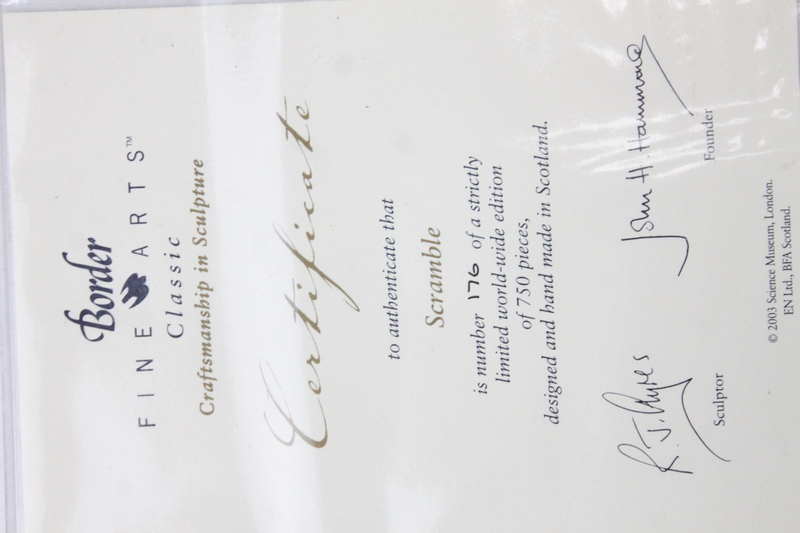 Border
FINE ARTS™
Classic
Craftsmanship in Sculpture
Certificate
to authenticate that
Scramble
is number 176 of a strictly
limited world-wide edition
of 750 pieces,
designed and hand made in Scotland.
R. J. Ayres John H. Hammond
Sculptor Founder
© 2003 Science Museum, London.
EN Ltd., BFA Scotland.